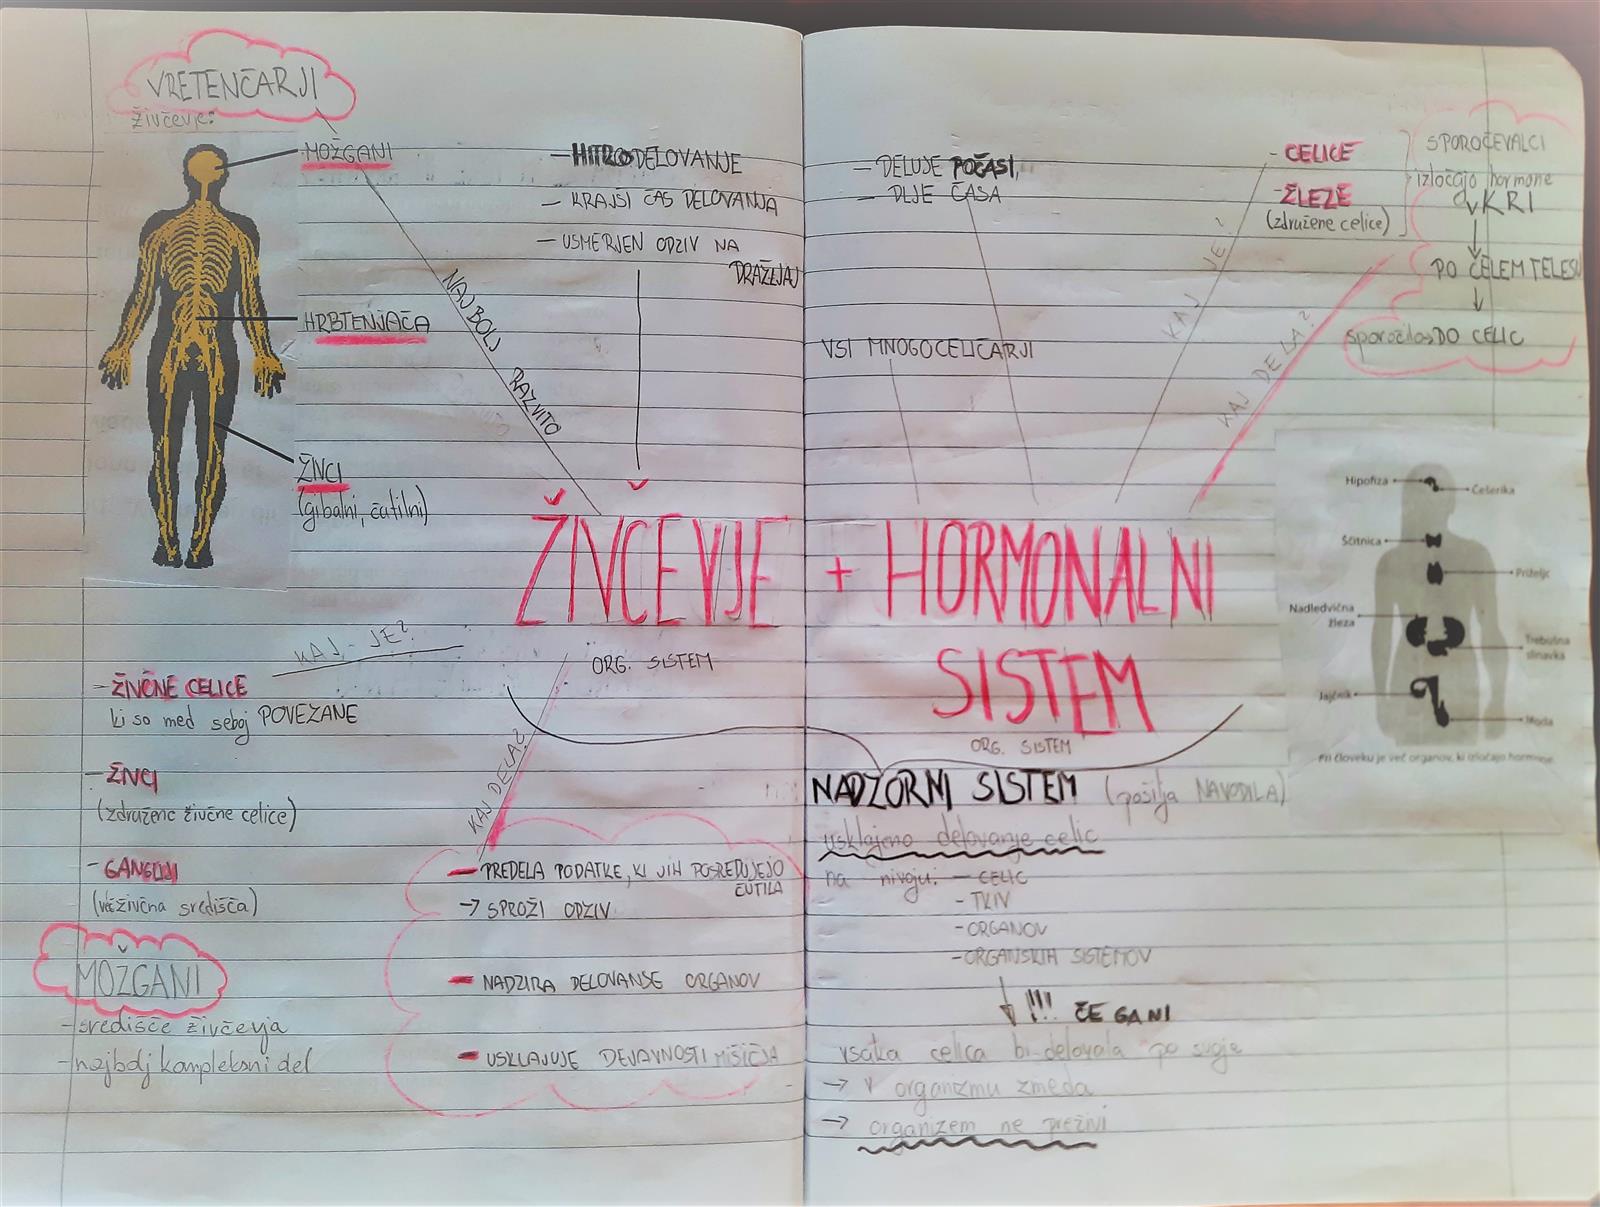 VRETENČARJI
živčevje:
MOŽGANI
HRBTENJAČA
ŽIVCI
(gibalni, čutilni)
NAJBOLJ RAZVITO
- HITRO DELOVANJE
- KRAJŠI ČAS DELOVANJA
- USMERJEN ODZIV NA
DRAŽLJAJ
- DELUJE POČASI,
- DLJE ČASA
VSI MNOGOCELIČARJI
KAJ JE?
KAJ DELA?
- CELICE
- ŽLEZE
(združene celice)
SPOROČEVALCI
izločajo hormone
v KRI
↓
PO CELEM TELESU
↓
sporočilos DO CELIC
ŽIVČEVJE + HORMONALNI
SISTEM
ORG. SISTEM
ORG. SISTEM
Hipofiza
Češerika
Ščitnica
Priželjc
Nadledvična
žleza
Trebušna
slinavka
Jajčnik
Moda
Pri človeku je več organov, ki izločajo hormone.
KAJ JE?
- ŽIVČNE CELICE
ki so med seboj POVEZANE
- ŽIVCI
(združene živčne celice)
- GANGLIJI
(več živčna središča)
MOŽGANI
- središče živčevja
- najbolj kompleksni del
KAJ DELA?
- PREDELA PODATKE, KI JIH POSREDUJEJO
ČUTILA
→ SPROŽI ODZIV
- NADZIRA DELOVANJE ORGANOV
- USKLAJUJE DEJAVNOSTI MIŠIČJA
NADZORNI SISTEM (pošilja NAVODILA)
usklajeno delovanje celic
na nivoju: - CELIC
- TKIV
- ORGANOV
- ORGANSKIH SISTEMOV
↓ !!! ČE GA NI
vsaka celica bi delovala po svoje
→ V organizmu zmeda
→ organizem ne preživi